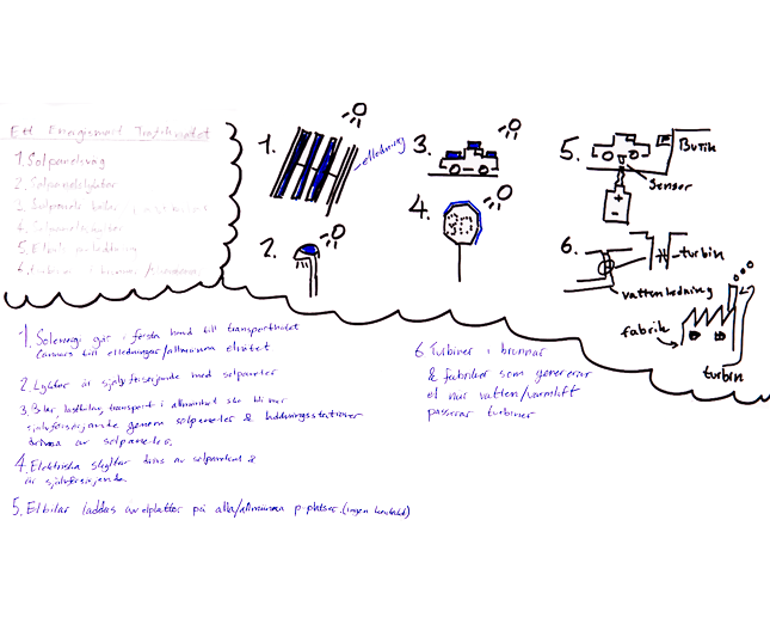 Ett Energismart Trafiknätet
1. Solpanelsväg
2. Solpanelslyktor
3. Solpanels
4. Solpanelsskyltar
5. Elbils
6. Turbiner i brunnar /
1.
elledning
2.
3.
4.
30
5.
Butik
Sensor
+
-
6.
turbin
vattenledning
fabrik
turbin
1. Solenergi går i första hand till transportnätet
annars till elledningar/allmänna elnätet
2. Lyktor är självförsörjande med solpaneler
3. Bilar, lastbilar, transport i allmänhet ska bli mer
självförsörjande genom solpaneler & laddningsstationer
drivna av solpaneler.
4. Elektriska skyltar drivs av solpanel &
är självförsörjande
5. Elbilar laddas av elplattor på alla/allmänna p-platser. (ingen kontakt)
6 Turbiner i brunnar
& fabriker som genererar
el när vatten/varmluft
passerar turbiner